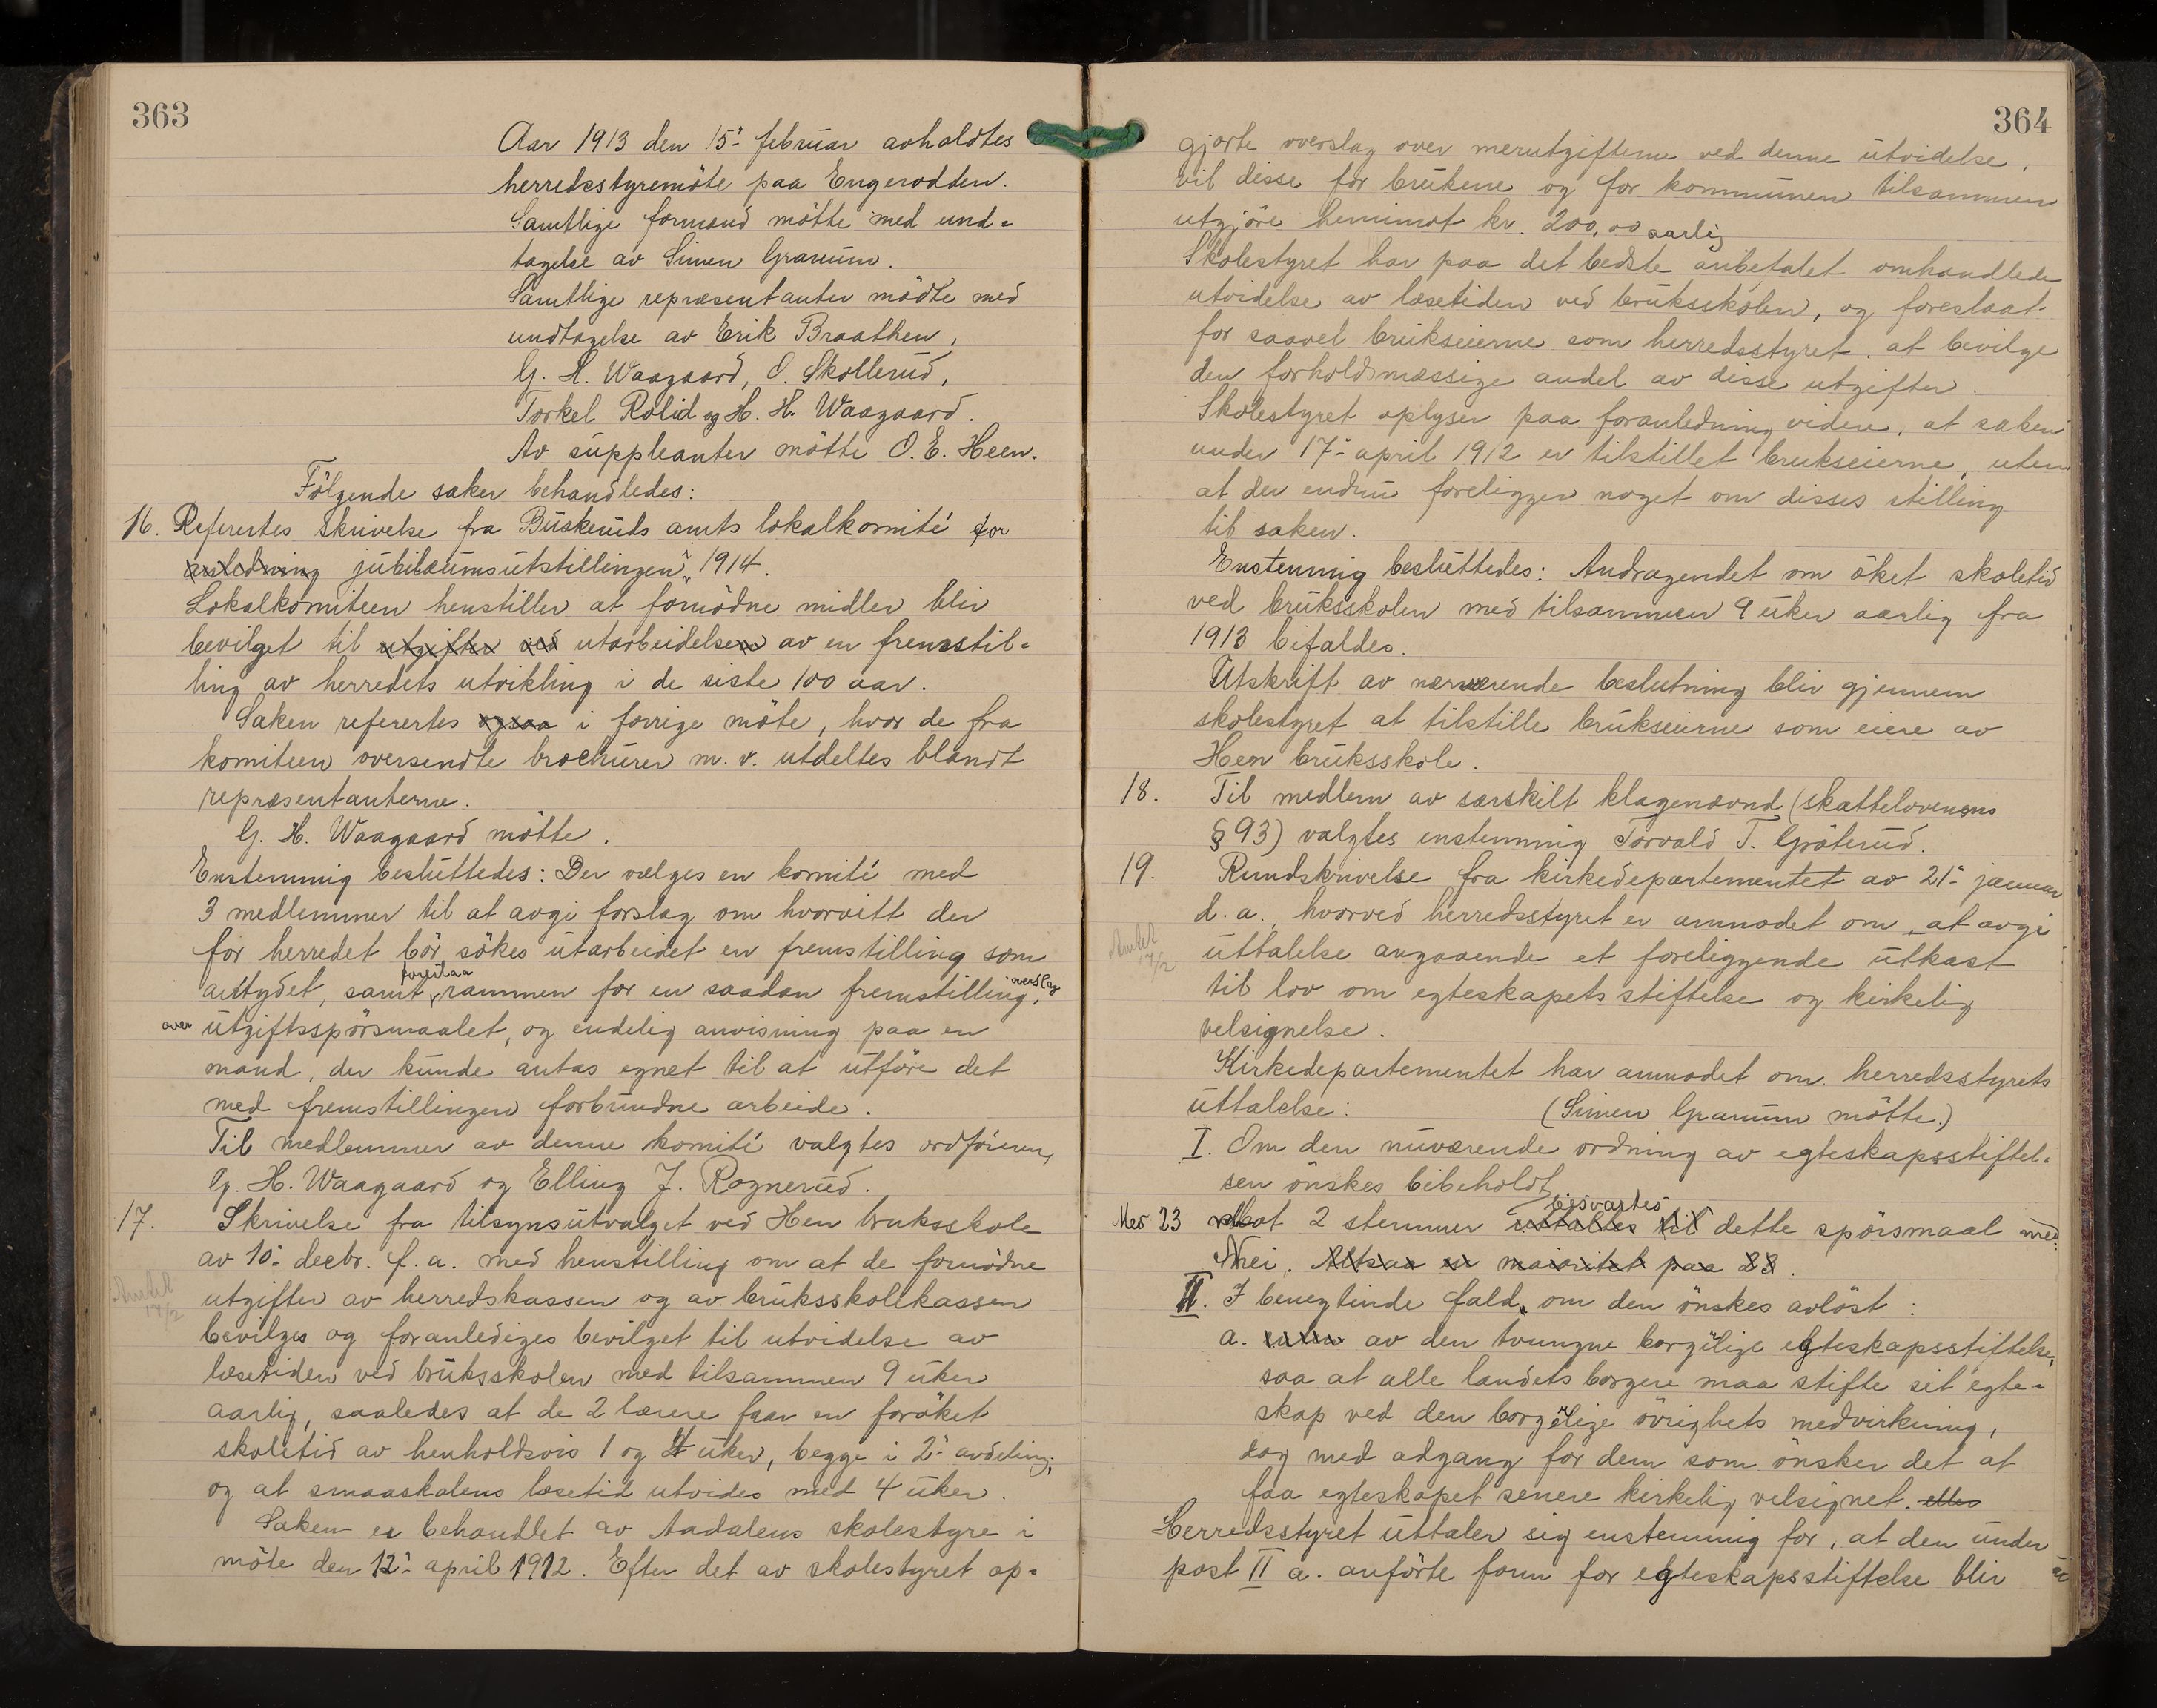 363
Aar 1913 den 15.' februar avholdtes
herredsstyremöte paa Engerodden.
Samtlige formænd mötte med und=
tagelse av Simen Granum.
Samtlige repræsentanter mödte med
undtagelse av Erik Braathen,
G. H. Waagaard, O. Skollerud,
Torkel Rolid og H. H. Waagaard.
Av suppleanter mötte O. E. Heen.
Fölgende saker behandledes:
16. Referertes skrivelse fra Buskeruds amts lokalkomité for
anledning jubilæumsutstillingen 1914.
Lokalkomiteen henstiller at fornödne midler blir
bevilget til utgifter ved utarbeidelsen av en fremstil=
ling av herredets utvikling i de siste 100 aar.
Saken referertes ogsaa i forrige möte, hvor de fra
komiteen oversendte brochurer m. v. utdeltes blandt
repræsentanterne.
G. H. Waagaard mötte.
Enstemmig besluttedes: Der vælges en komité med
3 medlemmer til at avgi forslag om hvorvitt der
for herredet bör sökes utarbeidet en fremstilling som
antydet, samt foreslaa rammen for en saadan fremstilling, overslag
over utgiftsspörsmaalet, og endelig anvisning paa en
mand, der kunde antas egnet til at utföre det
med fremstillingen forbundne arbeide.
Til medlemmer av denne komité valgtes ordföreren,
G. H. Waagaard og Elling J. Rognerud.
17. Skrivelse fra tilsynsutvalget ved Hen bruksskole
av 10.' decbr. f. a. med henstilling om at de fornödne
utgifter av herredskassen og av bruksskolekassen
bevilges og foranlediges bevilget til utvidelse av
læsetiden ved bruksskolen med tilsammen 9 uker
aarlig, saaledes at de 2 lærere faar en foröket
skoletid av henholdsvis 1 og 4 uker, begge i 2.' avdeling,
og at smaaskolens læsetid utvides med 4 uker.
Saken er behandlet av Aadalens skolestyre i
möte den 12.' april 1912. Efter det av skolestyret op=
364
gjorte overslag over merutgifterne ved denne utvidelse,
vil disse for brukene og for kommunen tilsammen
utgjöre henimot kr. 200,00 aarlig
Skolestyret har paa det bedste anbefalet omhandlede
utvidelse av læsetiden ved bruksskolen, og foreslaat
for saavel brukseierne som herredsstyret, at bevilge
den forholdsmæssige andel av disse utgifter.
Skolestyret oplyser paa foranledning videre, at saken
under 17.' april 1912 er tilstillet brukseierne, uten
at der endnu foreligger noget om disses stilling
til saken.
Enstemmig besluttedes: Andragendet om öket skoletid
ved bruksskolen med tilsammen 9 uker aarlig fra
1913 bifaldes.
Utskrift av nærværende beslutning blir gjennem
skolestyret at tilstille brukseierne som eiere av
Hen bruksskole.
18. Til medlem av særskilt klagenævnd (skattelovens
§ 93) valgtes enstemmig Torvald T. Gröterud.
19. Rundskrivelse fra kirkedepartementet av 21.' januar
d. a., hvorved herredsstyret er anmodet om at avgi
uttalelse angaaende et foreliggende utkast
til lov om egteskapets stiftelse og kirkelig
velsignelse.
Kirkedepartementet har anmodet om herredsstyrets
uttalelse: (Simen Granum mötte.)
I. Om den nuværende ordning av egteskapsstiftel=
sen önskes bibeholdt
Med 23 mot 2 stemmer besvartes dette spörsmaal med
Nei. Altsaa en majoritet paa 23.
II. I benegtende fald, om den önskes avlöst:
a. av den tvungne borgelige egteskapsstiftelse,
saa at alle landets borgere maa stifte sit egte=
skap ved den borgelige övrighets medvirkning,
dog med adgang for dem som önsker det at
faa egteskapet senere kirkelig velsignet. eller
Herredsstyret uttaler sig enstemmig for, at den under
post II a. anförte form for egteskapsstiftelse blir